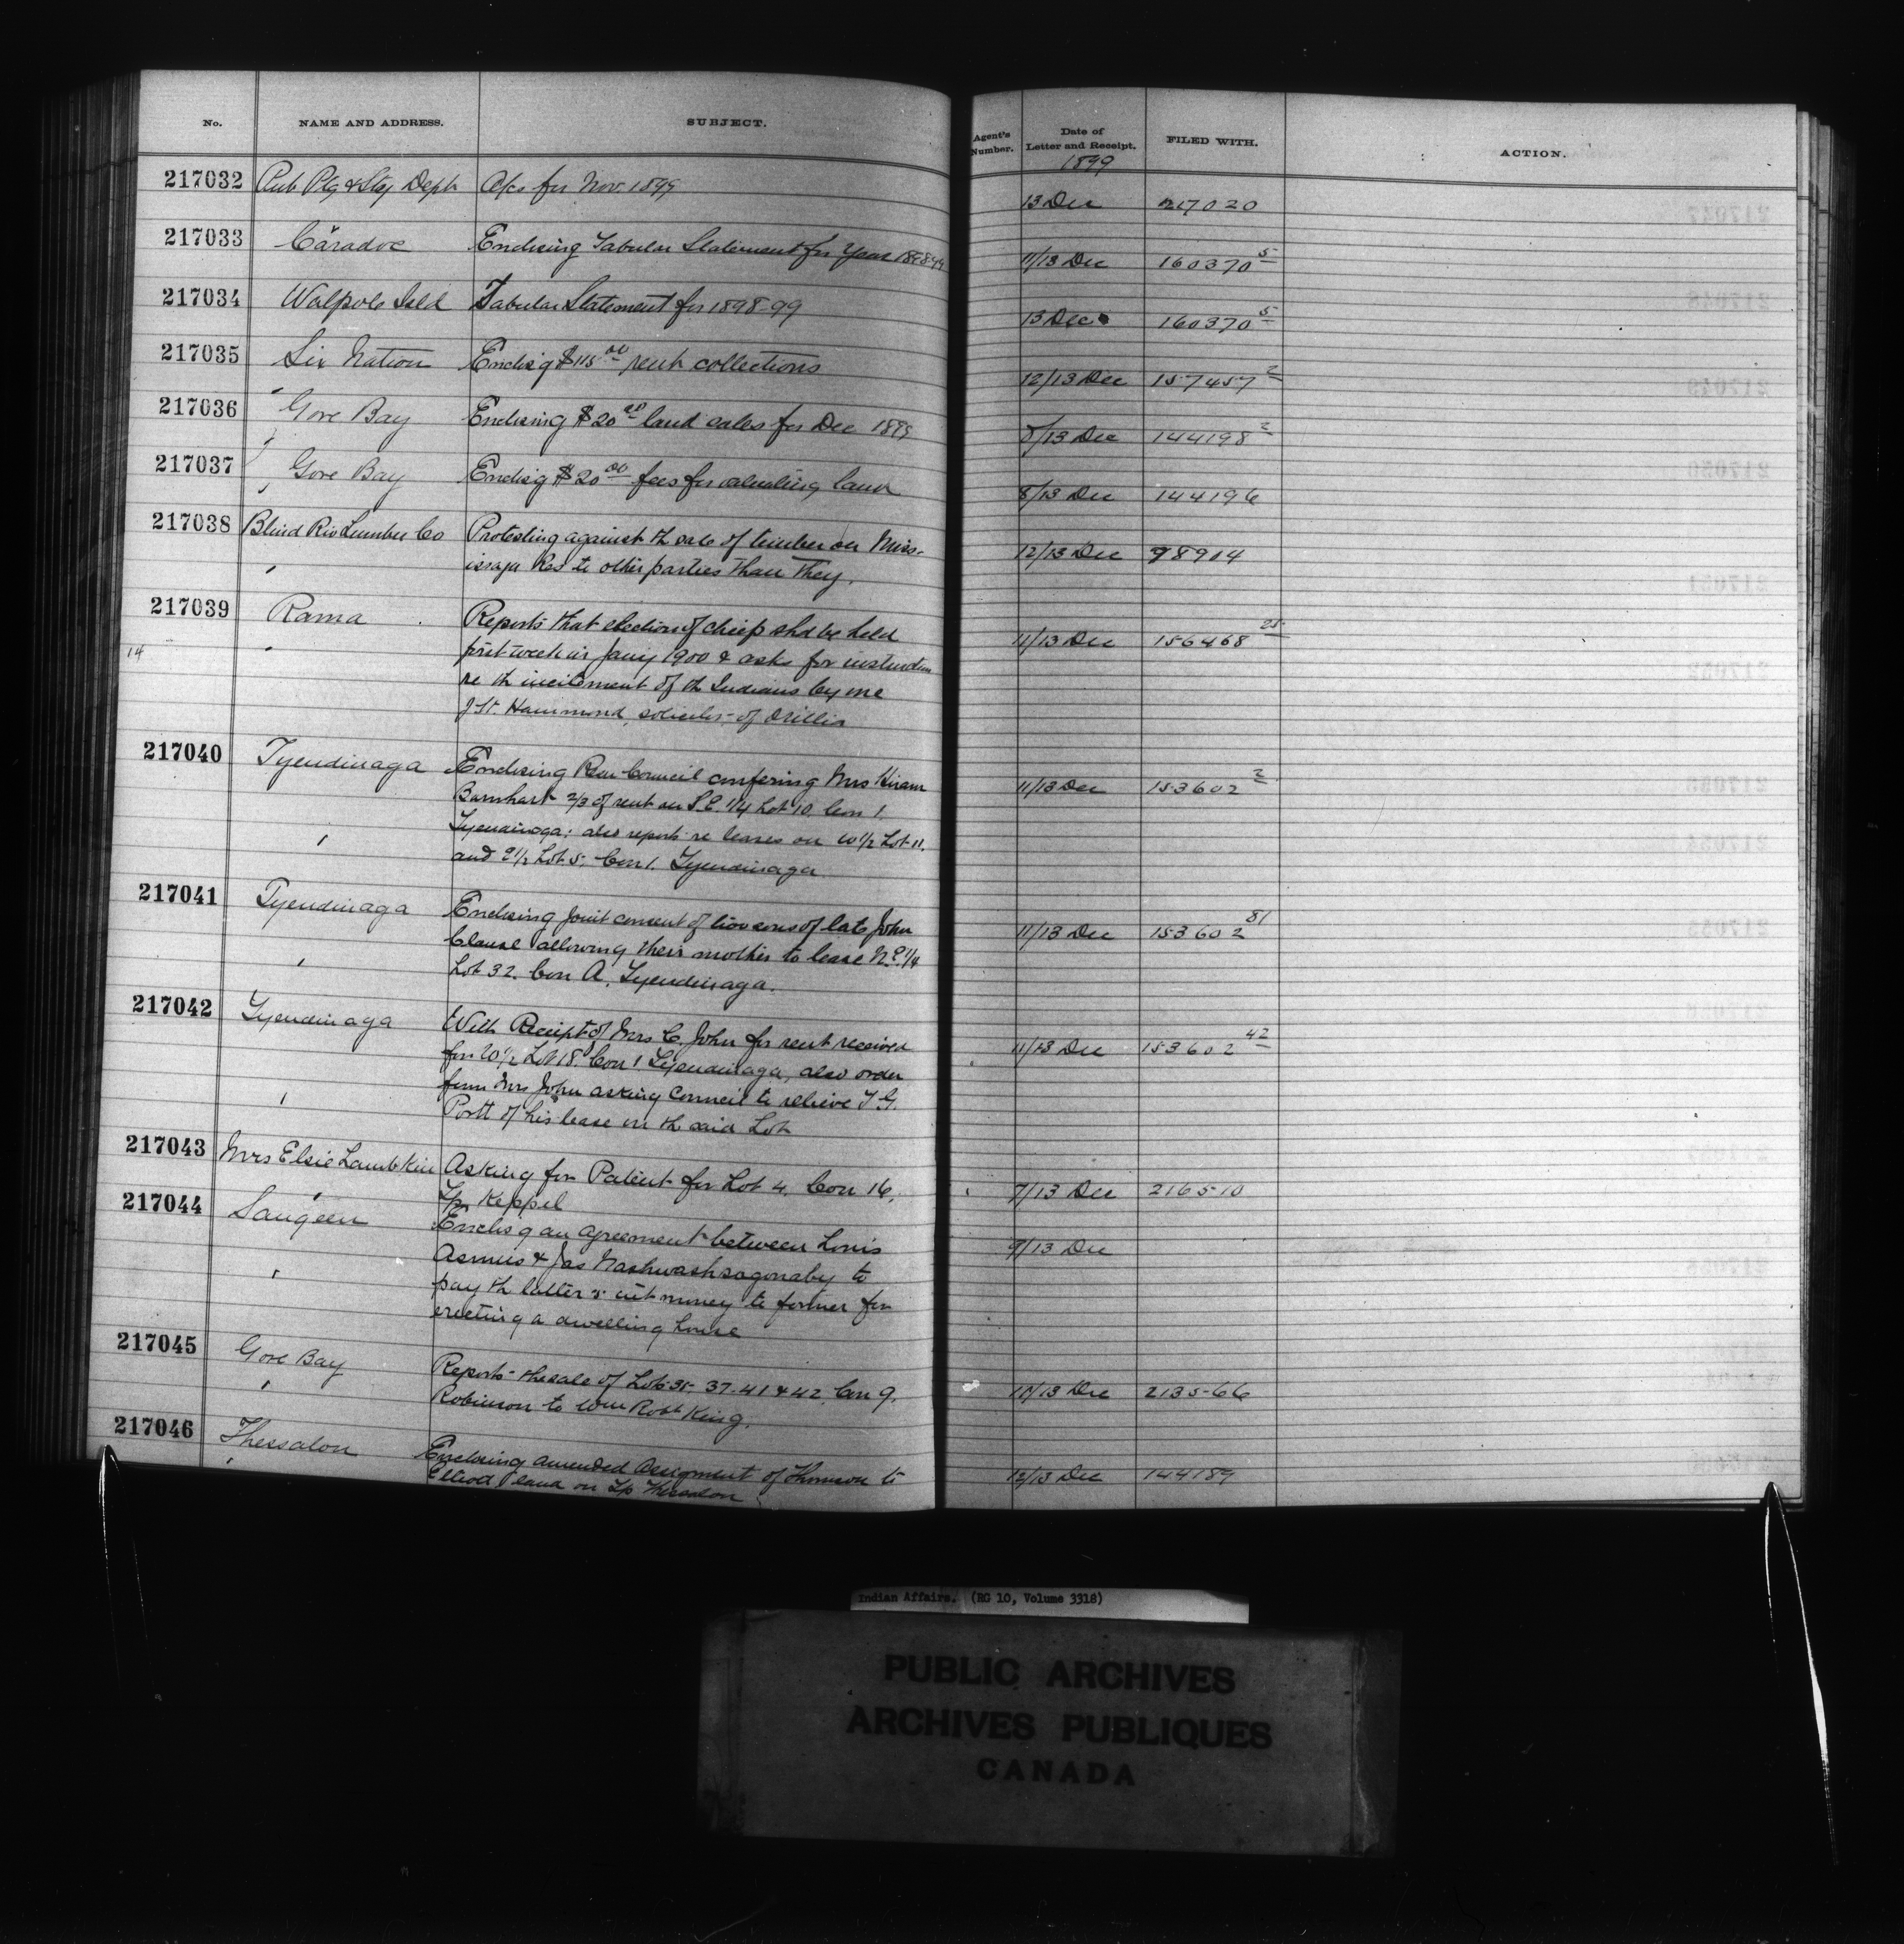 No. NAME AND ADDRESS. SUBJECT. Agent's Number. Date of Letter and Receipt. FILED WITH. ACTION.
1899
217032 Pub Ptg & Sty Dept A/cs for Nov. 1899 13 Dec 217020
217033 Caradoc Enclosing Tabular Statement for Year 1898-99 11/13 Dec 160370 5
217034 Walpole Isld Tabular Statement for 1898-99 13 Dec 160370 5
217035 Six Nation Enclos'g $115 00 rent collections 12/13 Dec 157457 2
217036 Gore Bay Enclosing $20 00 land sales for Dec 1899 8/13 Dec 144198 2
217037 Gore Bay Enclos'g $20 00 fees for valuating land 8/13 Dec 144196
217038 Blind Riv Lumber Co Protesting against th sale of timber on Miss- 12/13 Dec 98904
issaga Res to other parties than they.
217039 Rama Reports that election of chief shd be held 11/13 Dec 156468
14 first week in Jany 1900 & asks for instruction
re th incitement of th Indians by one
Hammond, solicitor of Orillia
217040 Tyendinaga Enclosing Res Council confering Mrs Hiram 11/13 Dec 153602 2
Barnhart 2/3 of rent on S.E. 1/4 Lot 10, Con 1.
Tyendinaga; also report re leases on W 1/2 Lot 11.
and E 1/2 Lot 5. Con 1. Tyendinaga
217041 Tyendinaga Enclosing joint consent of two sons of late John 11/13 Dec 153602 81
Clause allowing their mother to lease N.E. 1/4
Lot 32. Con A. Tyendinaga.
217042 Tyendinaga With Receipt of Mrs C. John for rent received 11/13 Dec 153602 42
for W 1/2 Lot 18. Con 1 Tyendinaga, also order
from Mrs John asking Council to relieve T G.
Portt of his lease on th said Lot
217043 Mrs Elsie Lambkin Asking for Patent for Lot 4, Con 16, 7/13 Dec 216510
Tp Keppel
217044 Saugeen Enclos'g an agreement between Louis 9/13 Dec
Asmus & Jas Nashwashsagonaby to
pay th latter's int money to former for
erecting a dwelling house
217045 Gore Bay Reports the sale of Lots 35. 37. 41 & 42, Con 9, 11/13 Dec 213566
Robinson to Wm Robt King.
217046 Thessalon Enclosing amended Assignment of Thomson to 12/13 Dec 144189
Elliott land on Tp Thessalon
Indian Affairs. (RG 10, Volume 3318)
PUBLIC ARCHIVES
ARCHIVES PUBLIQUES
CANADA